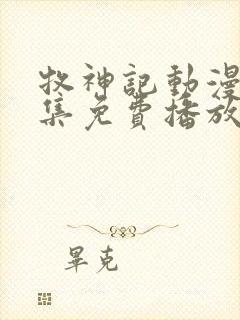 牧神記動漫
集免費播放
畢克